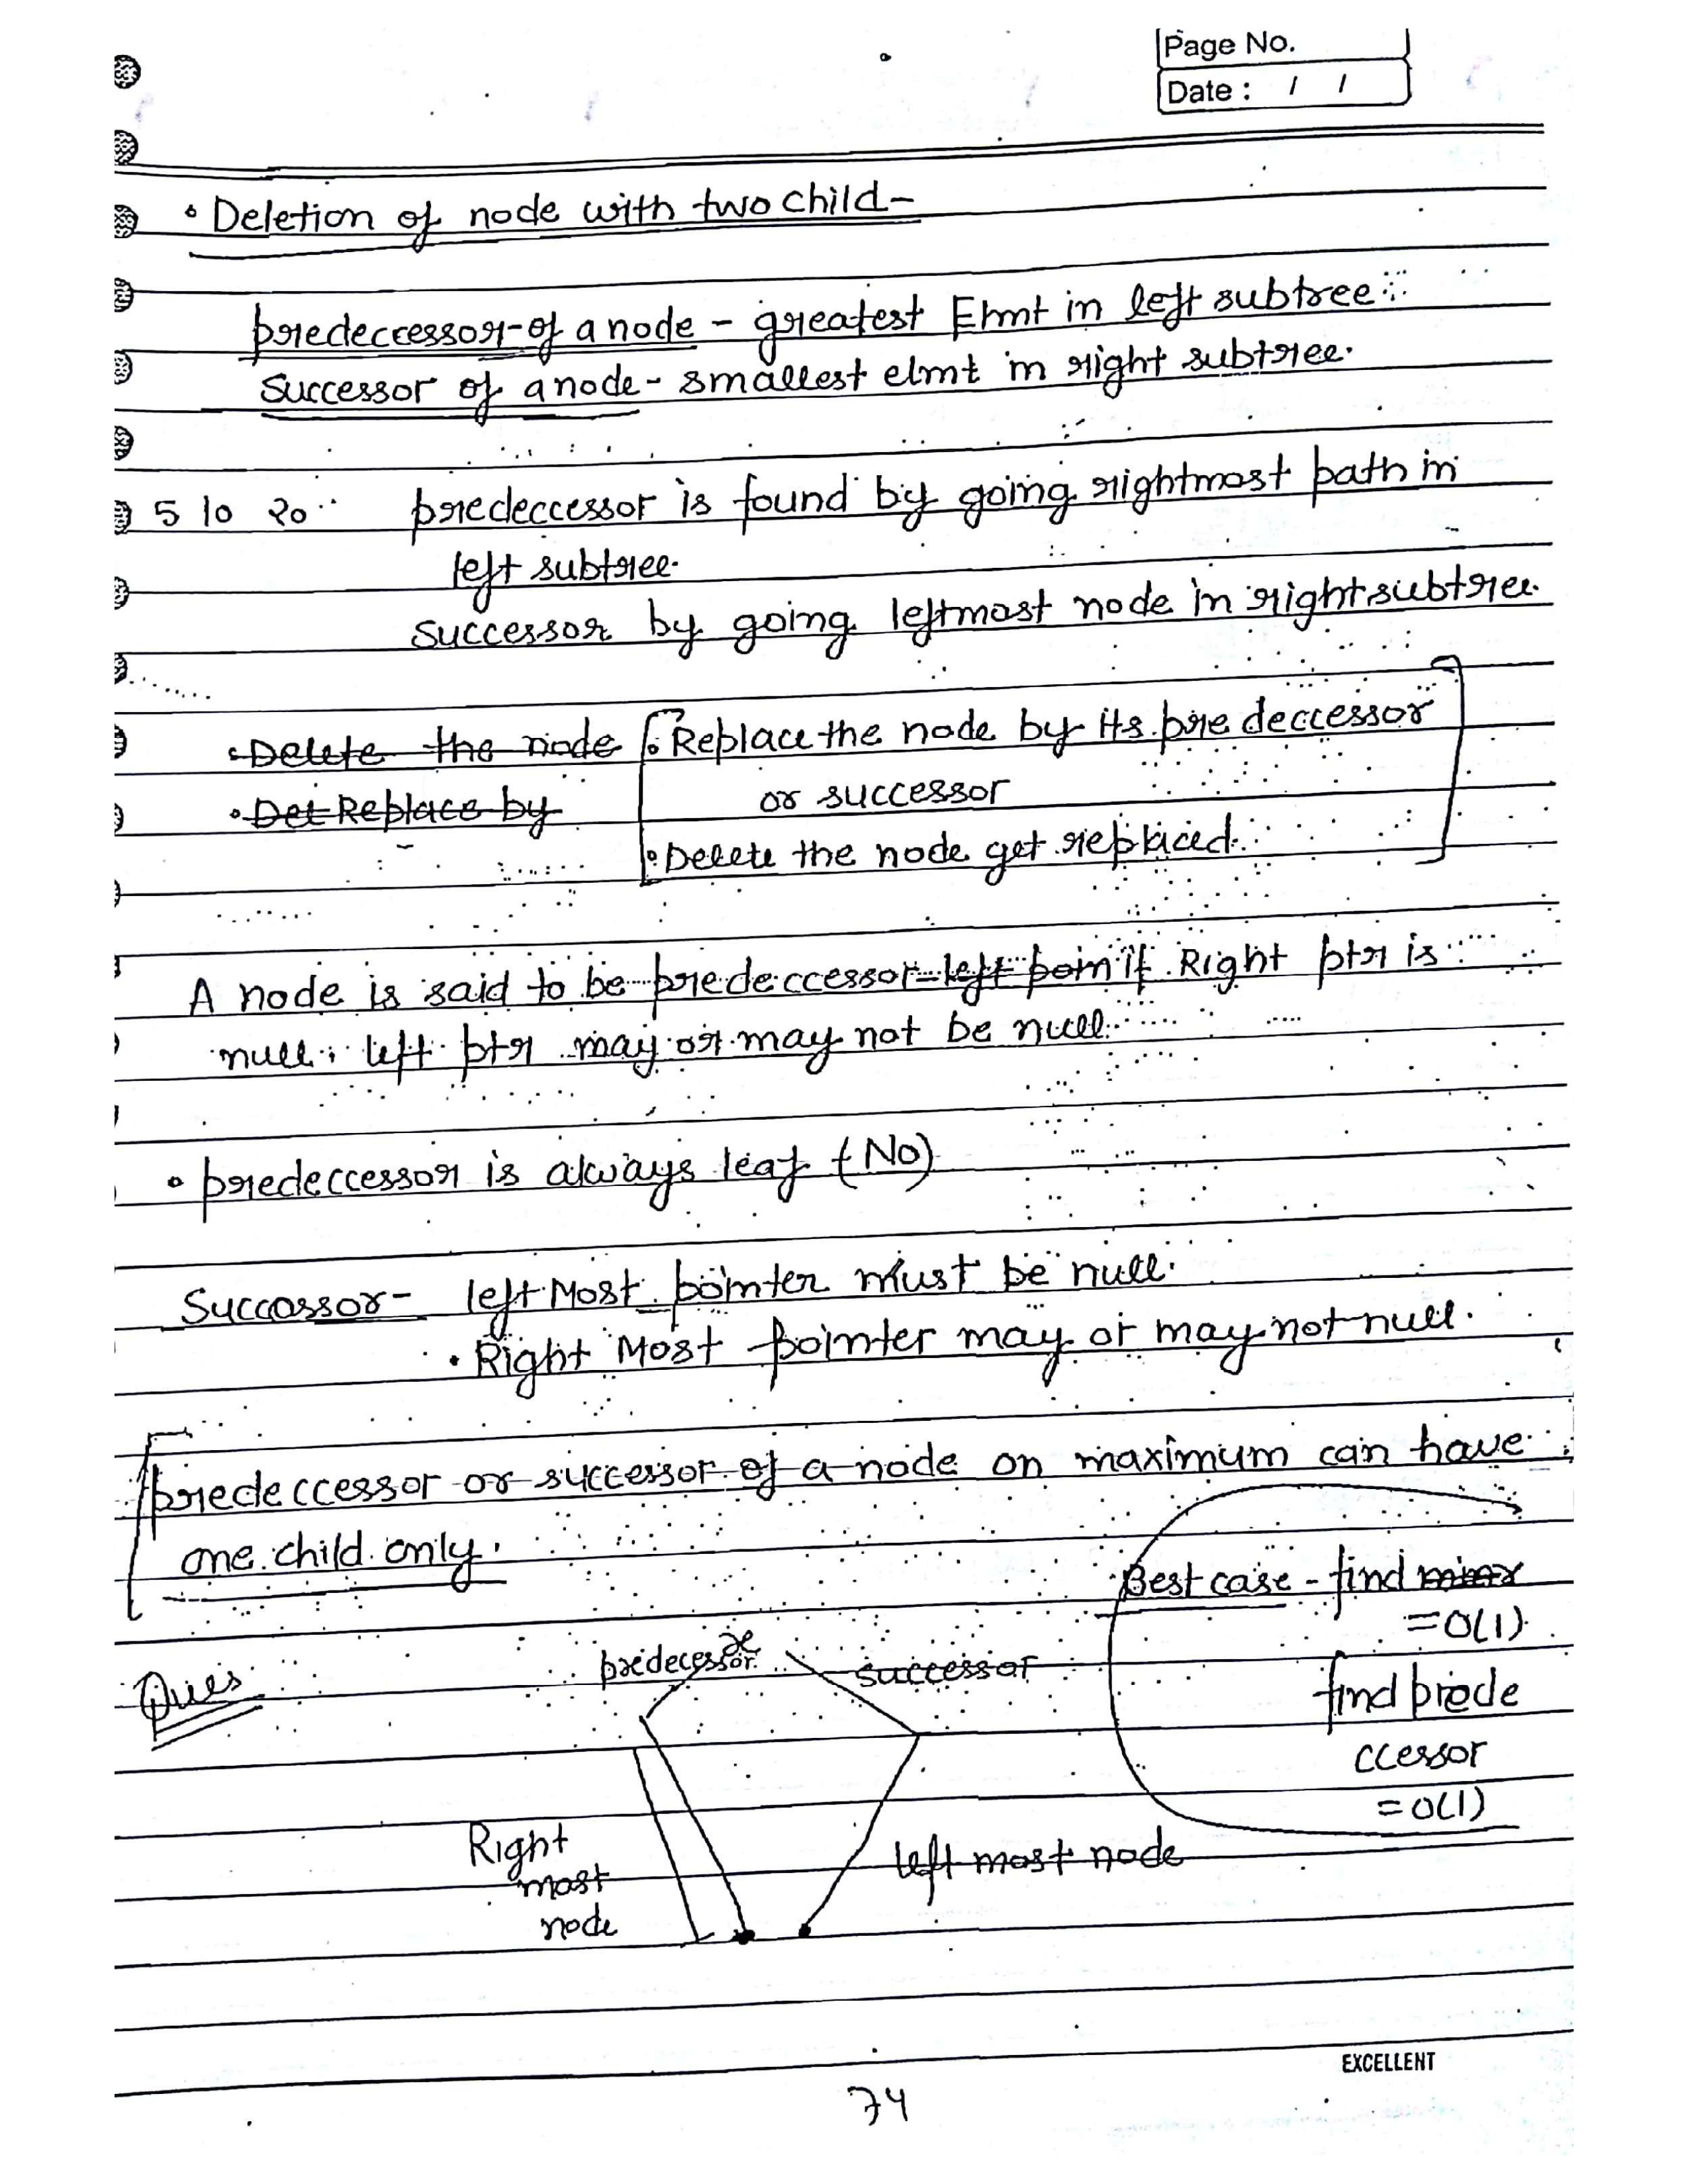 Page No.
Date : / /
• Deletion of node with two child-
predeccessor of a node - greatest Elmnt in left subtree
successor of a node - smallest elmt in right subtree.
5 10 20 predeccessor is found by going rightmost path in
left subtree.
successor by going leftmost node in right subtree.
• Delete the node • Replace the node by its predeccessor
• Det Replace by or successor
• Delete the node get replaced.
A node is said to be predeccessor left poin if Right ptr is
null. left ptr may or may not be null.
• predeccessor is always leaf (No)
Successor - left Most pointer must be null.
• Right Most pointer may or may not null.
predeccessor or successor of a node on maximum can have
one child only.
Best case - find
= O(1)
Ques predecessor x successor
find prede
ccessor
= O(1)
Right left most node
most
node
EXCELLENT
74